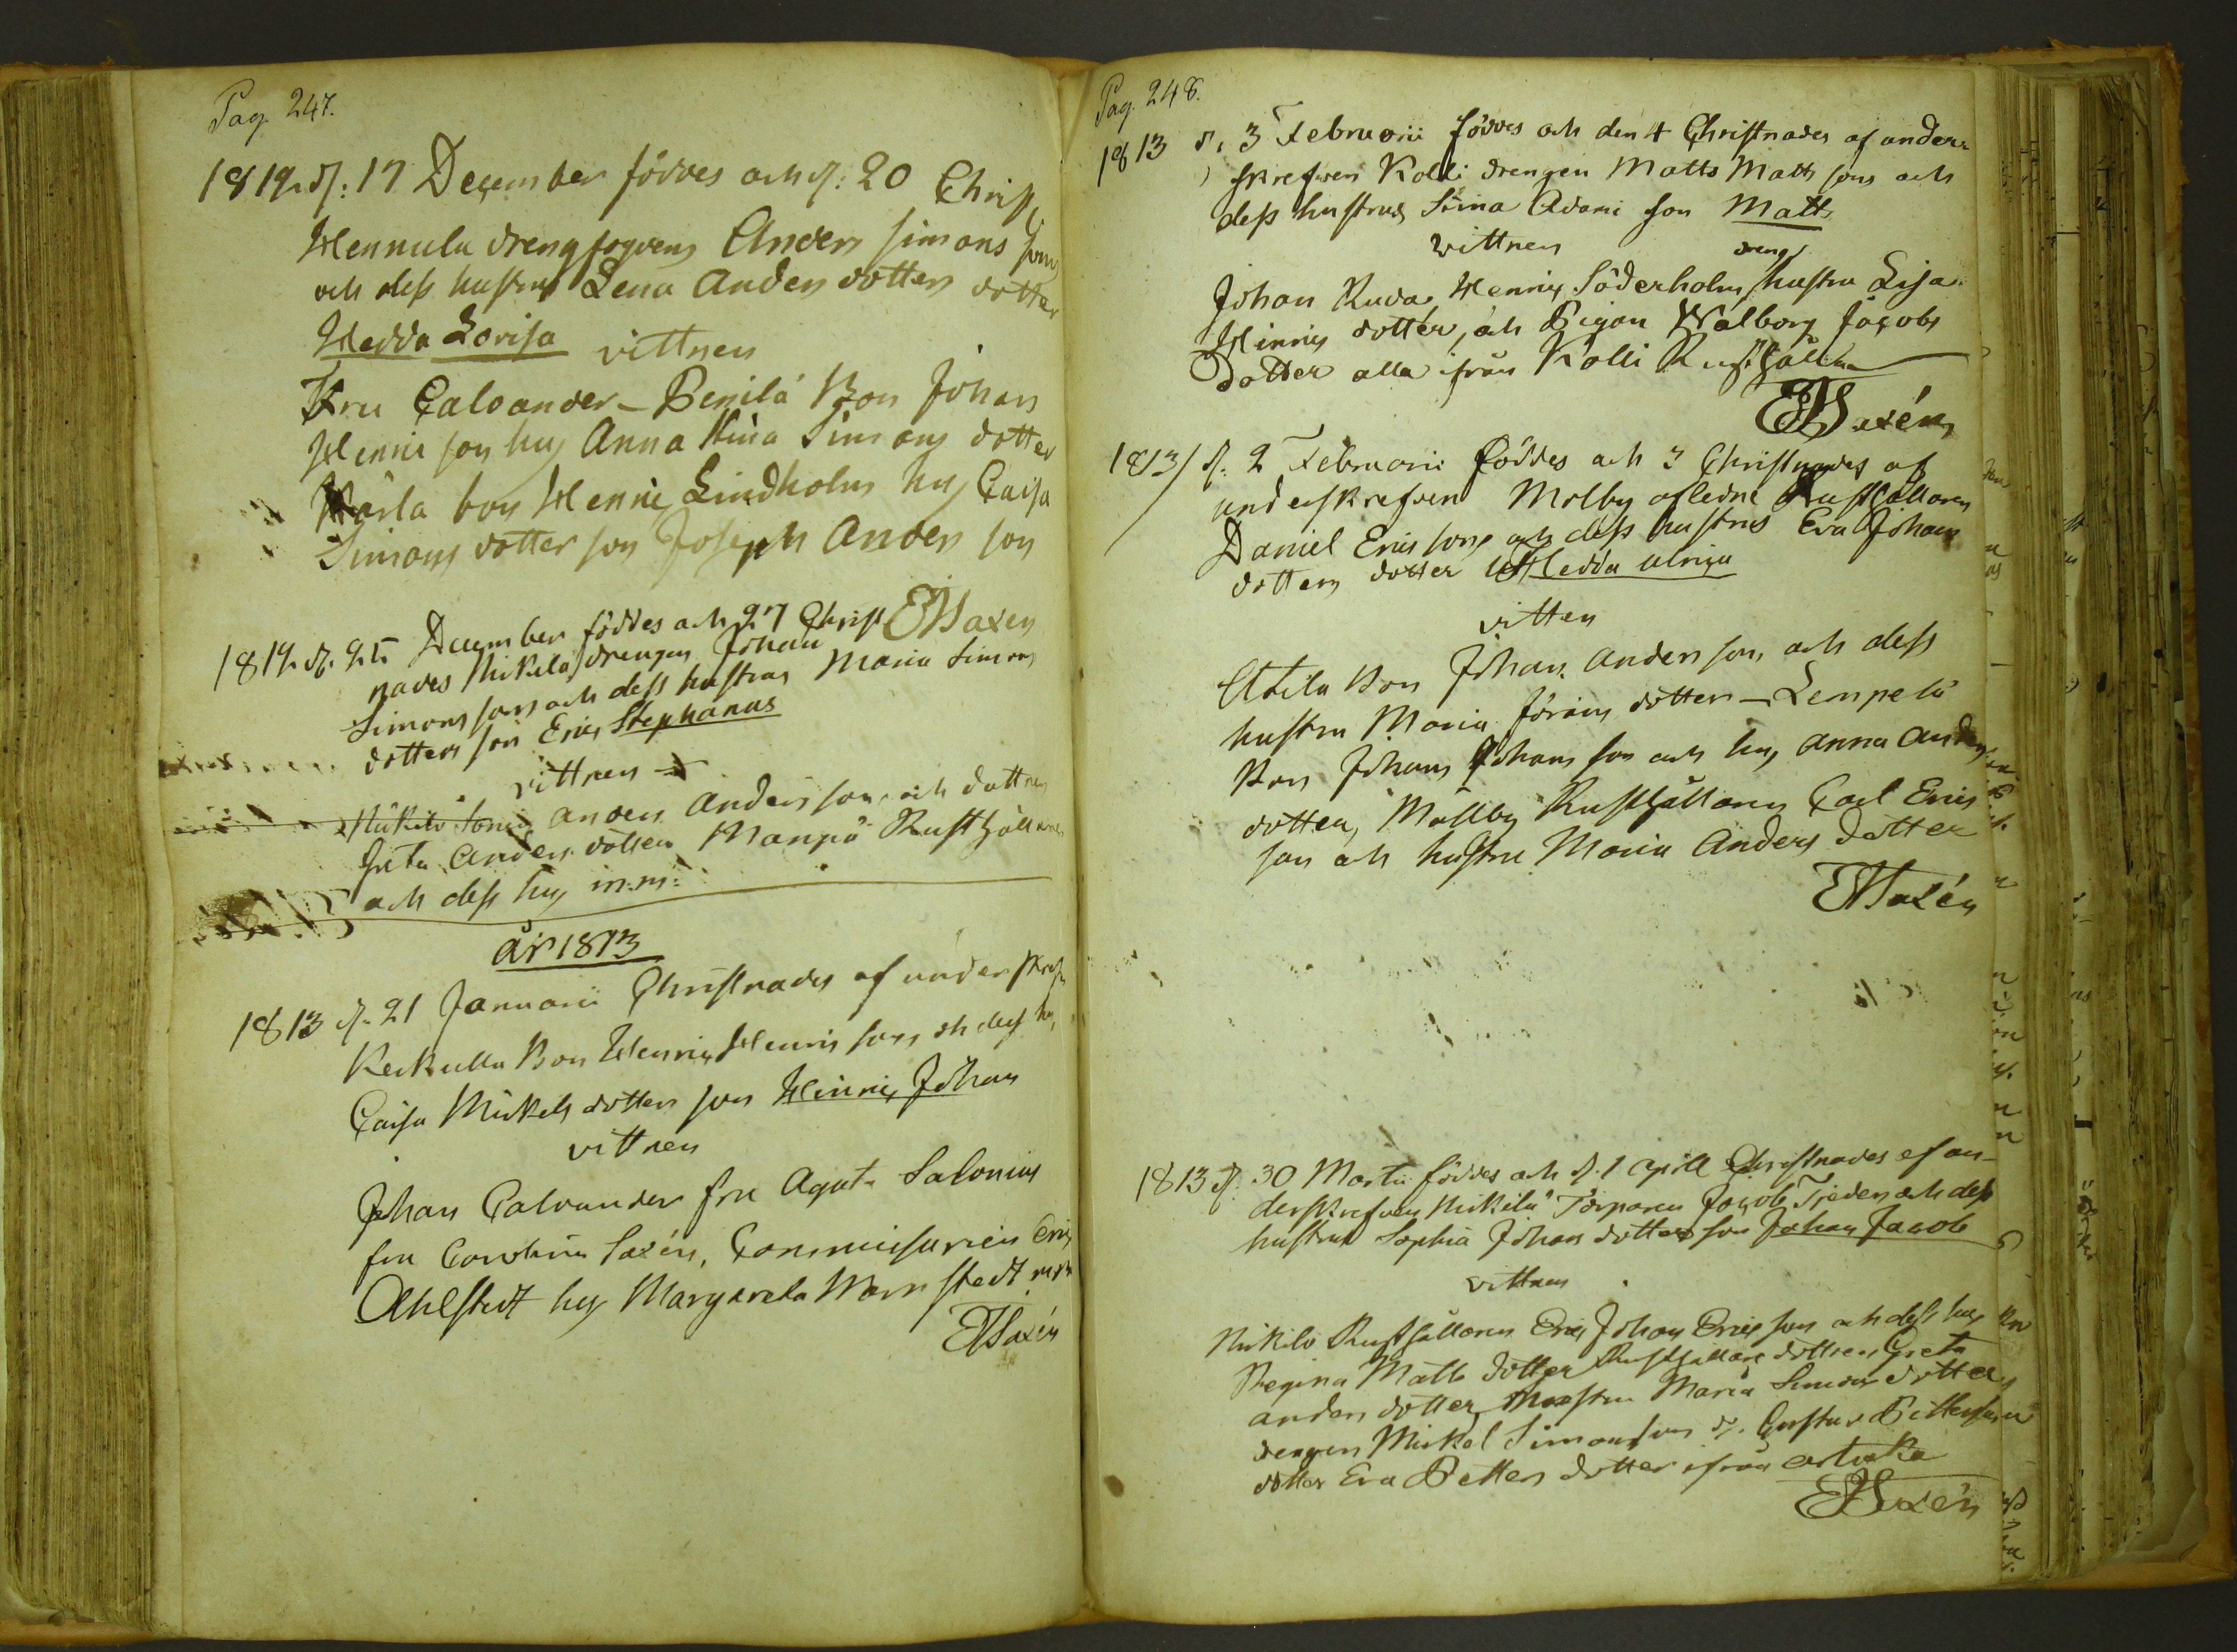 Pag. 247.
1812. d: 17 December föddes och d: 20 Christ
Hennula drengfogdens Anders Simons sons
och dess hustrus Lena Anders dotters dotter
Hedda Lovisa vittnen
Fru Calvander – Penilä Bon Johan
Henric son hus Anna Stina Simons dotter
Wärla bon Henric Lindholm hus Caisa
Simons dotter son Joseph Anders son
EHSaxen
1812. d. 25 December föddes och 27 Christ
nades Nikilä drengen Johan
Simons sons och dess hustrus Maria Simons
dotters son Eric Stephanus
vittnen
Nikilä Anders Anders son och dottren
Greta Anders dotter Manpä Rusthållaren
och dess hus m:m:
år 1813
1813 d. 21 Januarii Christnades af underskrefn
Keckulla Bon Henric Henrics sons och dess hus
Caisa Mickels dotters son Henric Johan
vittnen
Johan Calvander fru Agata Salonius
fru Carolina Saxén, Commissarien Eric
Ahlstedt hus Margareta Warnstedt m:m
EHSaxén
Pag. 248.
1813 d. 3 Februarii föddes och den 4 Christnades af under-
skrefven Kolli drengen Matts Matts sons och
dess hustrus Stina Adami son Matts
vittnen
dreng
Johan Ruda, Henric Söderholm, hustru Lisa
Henrics dotter, och Pigan Walborg Jacobs
Dotter alla ifrån Kolli Rusthåll
EHSaxén
1813/ d. 2 Februarii föddes och 3 Christnades af
underskrefven Molby afledne Rusthållaren
Daniel Erics sons och dess hustrus Eva Johans
dotters dotter Hedda Ulrica
vitten
Attila Bon Johan Anders son och dess
hustru Maria Görans dotter – Lempelä
Bon Johan Johans son och hus Anna Anders
dotter, Mällby Rusthållaren Carl Erics
son och hustru Maria Anders Dotter
EHSaxén
1813 d. 30 Martii föddes och d. 1 April Christnades af un-
derskrefven Nikilä Torparen Jacob Tjeders och dess
hustrus Sophia Johans dotters son Johan Jacob
vittnen
Nikilä Rusthållaren Eric Johan Erics son och dess hus
Regina Matts dotter Rusthållare dottren Greta
Anders dotter, Hustru Maria Simons dotter
drengen Mickel Simons son d. Gustav Petterson
dotter Eva Petters dotter ifrån
EHSaxén